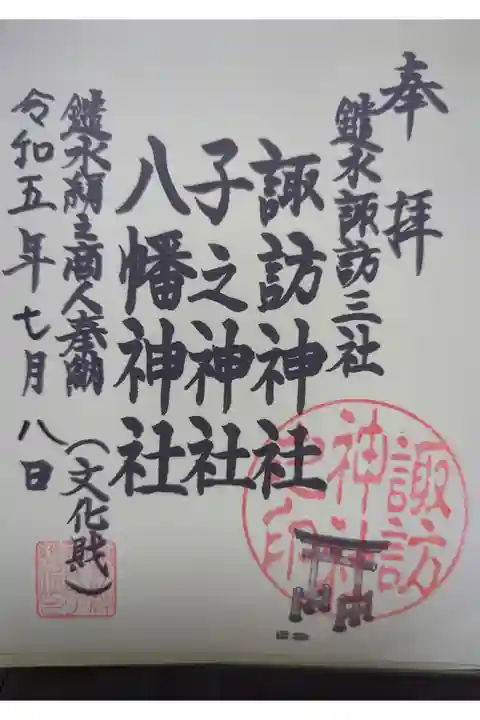 奉拝
鑓水諏訪三社
諏訪神社
子之神社
八幡神社
鑓水絹之商人奉納(文化財)
令和五年七月八日
諏訪
神社
神
印